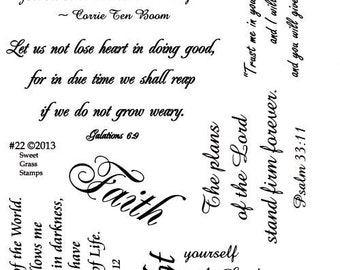 ~ Corrie Ten Boom
Let us not lose heart in doing good,
for in due time we shall reap
if we do not grow weary.
Galations 6:9
#22 ©2013
Sweet
Grass
Stamps
Faith
"Trust me in your
and I will
and you will give
The plans
of the Lord
stand firm forever.
Psalm 33:11
of the World.
llows me
in darkness,
have
of Life.
12
yourself